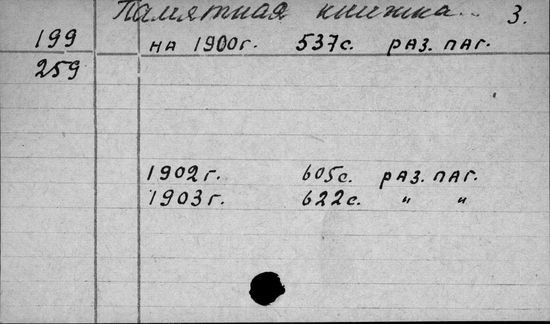 Памятная книжка... 3.
199 на 1900г. 537с. раз. паг.
259
1902г. 605с. раз. паг.
1903г. 622с. " "